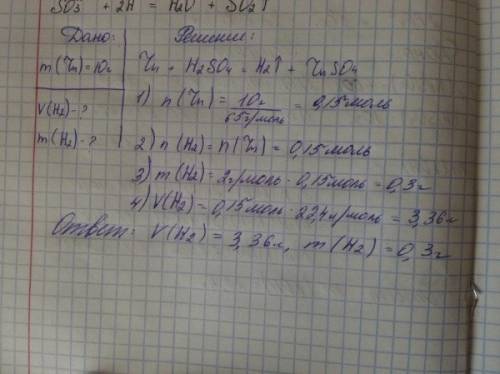 SO3 + 2H = H2O + SO2↑
Дано:
Решение:
m(Zn)=10г
Zn + H2SO4 = H2↑ + ZnSO4
V(H2)-?
m(H2)-?
1) n(Zn) = 10г / 65г/моль = 0,15моль
2) n(H2) = n(Zn) = 0,15моль
3) m(H2) = 2г/моль · 0,15моль = 0,3г
4) V(H2) = 0,15моль · 22,4л/моль = 3,36л
Ответ: V(H2) = 3,36л, m(H2) = 0,3г